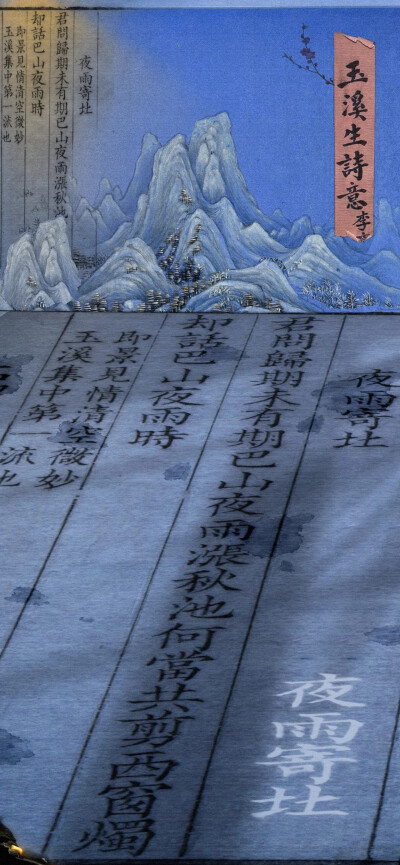 玉溪生詩意
李
夜雨寄北
君問歸期未有期巴山夜雨漲秋池
却話巴山夜雨時
即景見情清空微妙
玉溪集中第一流也
夜雨寄北
君問歸期未有期巴山夜雨漲秋池何當共剪西窗燭
却話巴山夜雨時
即景見情清空微妙
玉溪集中第一流也
夜雨寄北